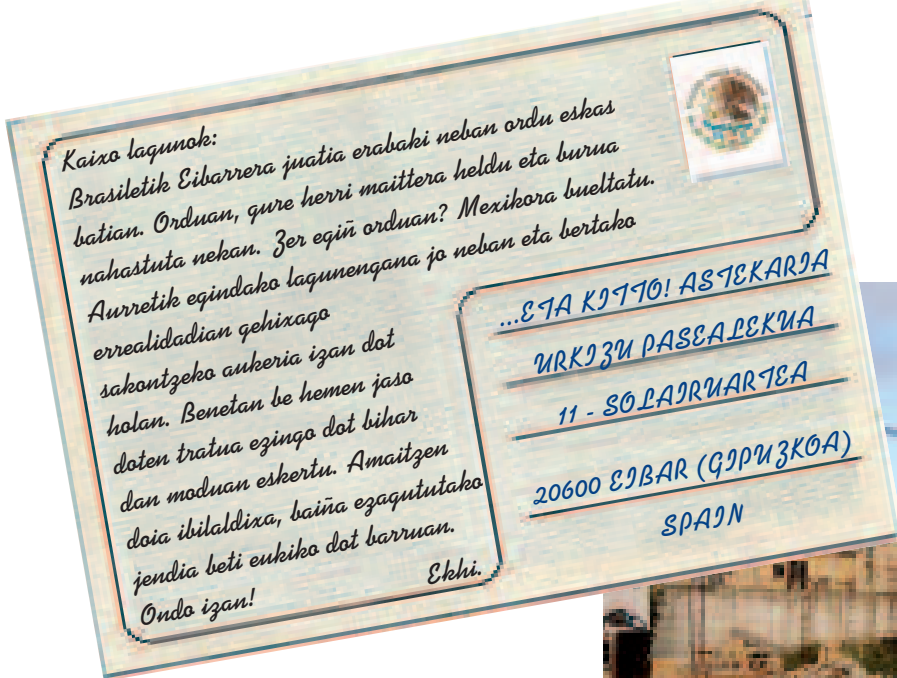 Kaixo lagunok:
Brasiletik Eibarrera juatia erabaki neban ordu eskas
batian. Orduan, gure herri maittera heldu eta burua
nahastuta nekan. Zer egiñ orduan? Mexikora bueltatu.
Aurretik egindako lagunengana jo neban eta bertako
errealidadian gehixago
sakontzeko aukeria izan dot
holan. Benetan be hemen jaso
doten tratua ezingo dot bihar
dan moduan eskertu. Amaitzen
doia ibilaldixa, baiña ezagututako
jendia beti eukiko dot barruan.
Ondo izan!
Ekhi.
...ETA KITTO! ASTEKARIA
URKIZU PASEALEKUA
11 - SOLAIRUARTEA
20600 EIBAR (GIPUZKOA)
SPAIN